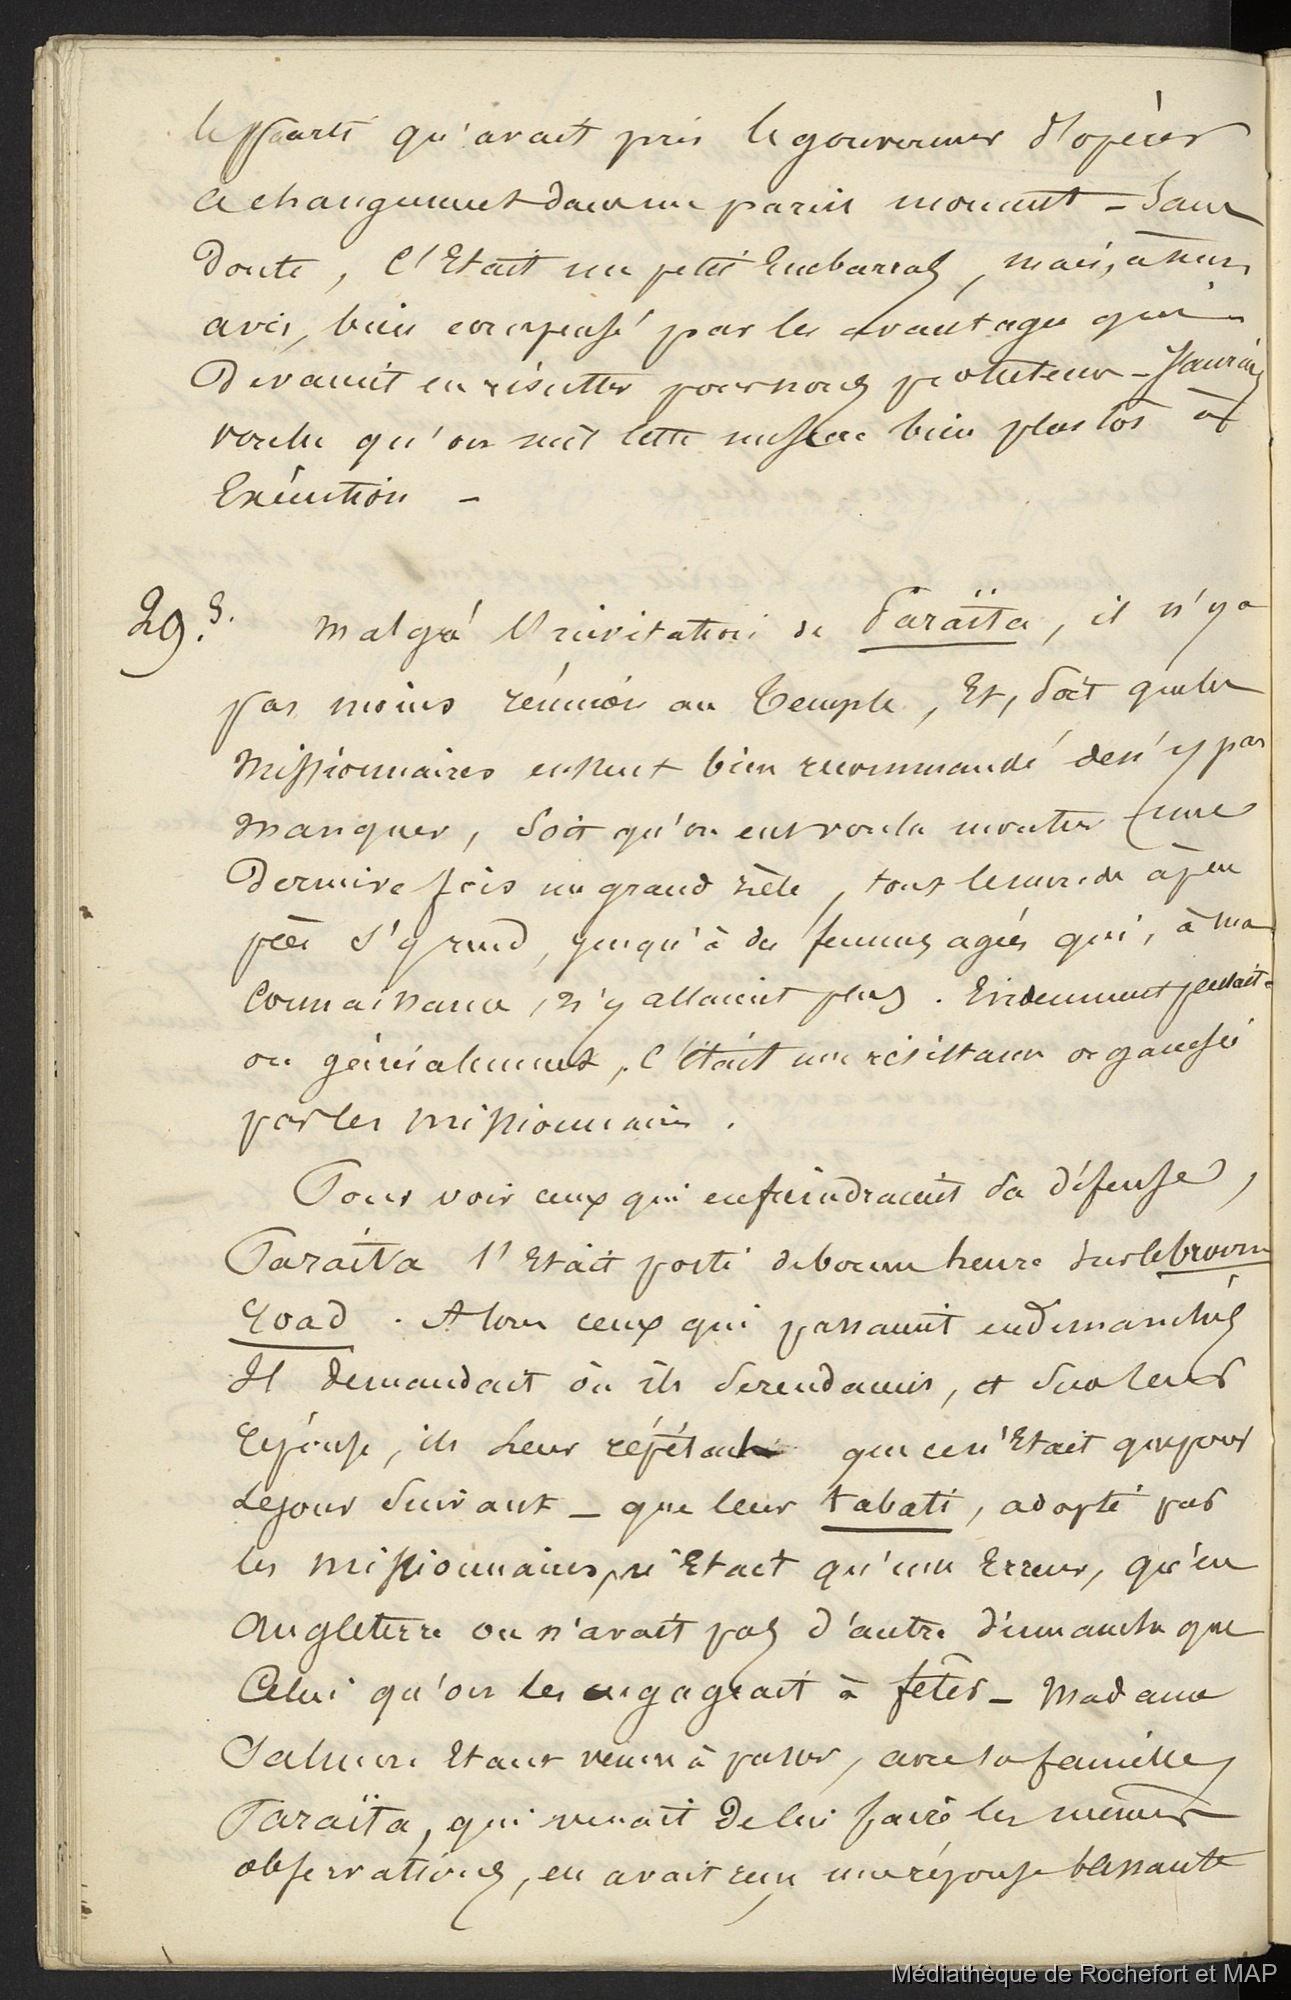 le parti qu'avait pris le gouverneur d'opérer
ce changement dans un pareil moment _ Sans
Doute, c'Etait un petit Embarras, mais, à mon
avis, bien compensé par les avantages qui
Devaient en résulter pour nous protecteurs _ J'aurais
voulu qu'on mît cette mesure bien plus tôt à
Exécution _
29. S. Malgré l'invitation de Paraïta, il n'y a
pas moins réunion au Temple, Et, soit que les
Missionnaires eussent bien recommandé de n'y pas
manquer, soit qu'on eut voulu montrer une
Dernière fois un grand zèle, tout le monde à peu
près s'y rend, jusqu'à des femmes agées qui, à ma
Connaissance, n'y allaient plus. Evidemment pensait-
on généralement, c'était une résistance organisée
par les missionnaires.
Pour voir ceux qui enfreindraient sa défense,
Paraïta s'Etait posté de bonne heure sur le broom
Road. A tous ceux qui passaient endimanchés
Il demandait où ils se rendaient, et sur leur
Réponse, ils leur répétait que ce n'Etait que pour
Le jour suivant _ que leur tabati, adopté par
les missionnaires, n'Etait qu'une Erreur, qu'en
Angleterre on n'avait pas d'autre dimanche que
Celui qu'on les engageait à fêter _ Madame
Salmon Etant venue à passer, avec sa famille,
Paraïta, qui venait de lui faire les mêmes
observations, en avait reçu une réponse blessante
Médiathèque de Rochefort et MAP